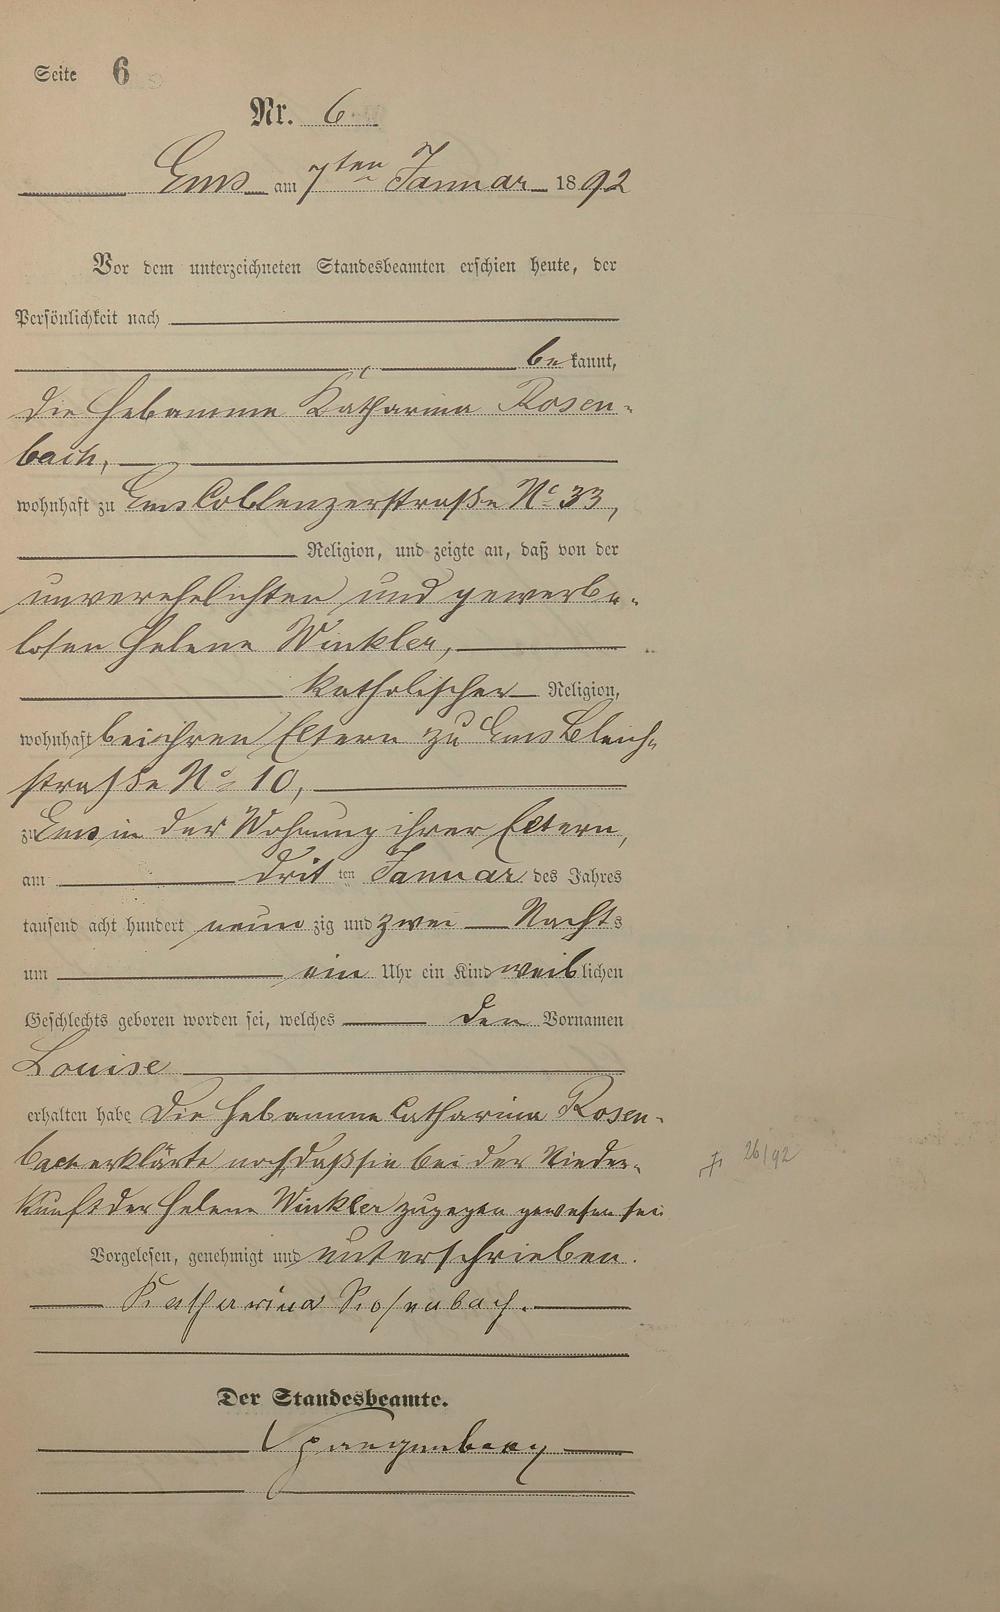 Seite 6
Nr. 6
Ems am 7ten Januar 1892
Vor dem unterzeichneten Standesbeamten erschien heute, der
Persönlichkeit nach
bekannt,
die Hebamme Katharina Rosen-
bach,
wohnhaft zu Ems Coblenzerstraße No 33,
Religion, und zeigte an, daß von der
unverehelichten und gewerbe-
losen Helene Winkler,
katholischer Religion,
wohnhaft bei ihren Eltern zu Ems Bleich-
straße No 10,
zu Ems in der Wohnung ihrer Eltern,
am dritten Januar des Jahres
tausend acht hundert neunzig und zwei Nachts
um ein Uhr ein Kind weiblichen
Geschlechts geboren worden sei, welches den Vornamen
Louise
erhalten habe Die Hebamme Catharina Rosen-
bach erklärte noch daß sie bei der Nieder-
kunft der Helene Winkler zugegen gewesen sei
26/92
Vorgelesen, genehmigt und unterschrieben.
Katharina Rosenbach.
Der Standesbeamte.
Spangenberg